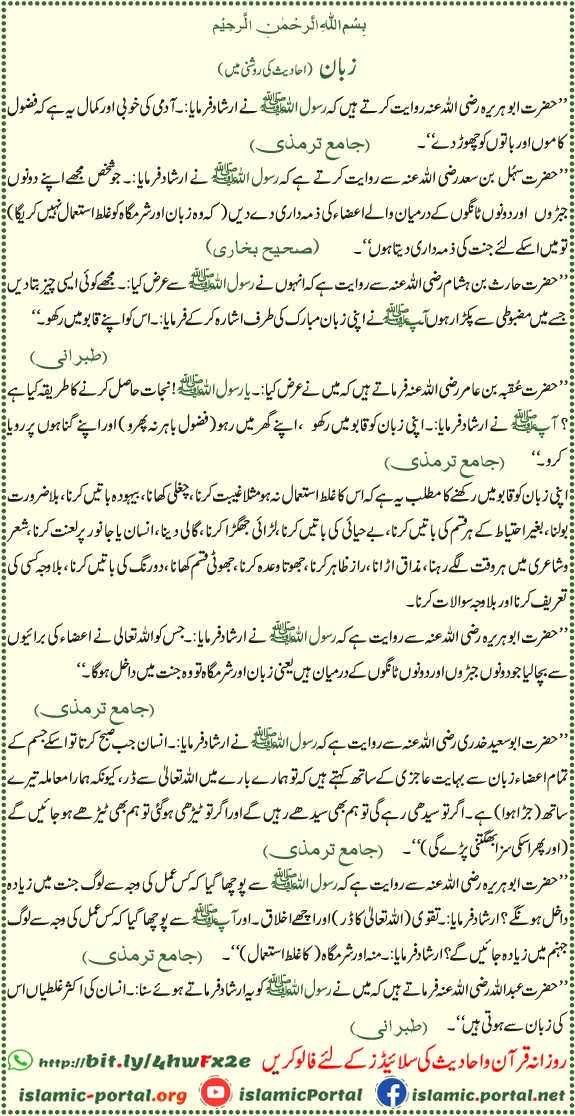 بِسْمِ اللهِ الرَّحْمٰنِ الرَّحِيْمِ
زبان (احادیث کی روشنی میں)
’’حضرت ابوہریرہ رضی اللہ عنہ روایت کرتے ہیں کہ رسول اللہ ﷺ نے ارشاد فرمایا:۔ آدمی کی خوبی اور کمال یہ ہے کہ فضول
کاموں اور باتوں کو چھوڑ دے‘‘۔ (جامع ترمذی)
’’حضرت سہل بن سعد رضی اللہ عنہ سے روایت کرتے ہے کہ رسول اللہ ﷺ نے ارشاد فرمایا:۔ جو شخص مجھے اپنے دونوں
جبڑوں اور دونوں ٹانگوں کے درمیان والے اعضاء کی ذمہ داری دے دیں (کہ وہ زبان اور شرمگاہ کو غلط استعمال نہیں کریگا)
تو میں اسکے لئے جنت کی ذمہ داری دیتا ہوں‘‘۔ (صحیح بخاری)
’’حضرت حارث بن ہشام رضی اللہ عنہ سے روایت ہے کہ انہوں نے رسول اللہ ﷺ سے عرض کیا:۔ مجھے کوئی ایسی چیز بتا دیں
جسے میں مضبوطی سے پکڑا رہوں آپ ﷺ نے اپنی زبان مبارک کی طرف اشارہ کر کے فرمایا:۔ اس کو اپنے قابو میں رکھو۔‘‘
(طبرانی)
’’حضرت عُقبہ بن عامر رضی اللہ عنہ فرماتے ہیں کہ میں نے عرض کیا:۔ یا رسول اللہ ﷺ! نجات حاصل کرنے کا طریقہ کیا ہے
؟ آپ ﷺ نے ارشاد فرمایا:۔ اپنی زبان کو قابو میں رکھو ، اپنے گھر میں رہو (فضول باہر نہ پھرو) اور اپنے گناہوں پر رویا
کرو۔‘‘ (جامع ترمذی)
اپنی زبان کو قابو میں رکھنے کا مطلب یہ ہے کہ اس کا غلط استعمال نہ ہو مثلا غیبت کرنا، چغلی کھانا، بیہودہ باتیں کرنا، بلا ضرورت
بولنا، بغیر احتیاط کے ہر قسم کی باتیں کرنا، بے حیائی کی باتیں کرنا، لڑائی جھگڑا کرنا، گالی دینا، انسان یا جانور پر لعنت کرنا، شعر
و شاعری میں ہر وقت لگے رہنا، مذاق اڑانا، راز ظاہر کرنا، جھوتا وعدہ کرنا، جھوٹی قسم کھانا، دو رنگ کی باتیں کرنا، بلاوجہ کسی کی
تعریف کرنا اور بلاوجہ سوالات کرنا۔
’’حضرت ابوہریرہ رضی اللہ عنہ سے روایت ہے کہ رسول اللہ ﷺ نے ارشاد فرمایا:۔ جس کو اللہ تعالی نے اعضاء کی برائیوں
سے بچا لیا جو دونوں جبڑوں اور دونوں ٹانگوں کے درمیان ہیں یعنی زبان اور شرمگاہ تو وہ جنت میں داخل ہوگا۔‘‘
(جامع ترمذی)
’’حضرت ابوسعید خدری رضی اللہ عنہ سے روایت ہے کہ رسول اللہ ﷺ نے ارشاد فرمایا:۔ انسان جب صبح کرتا تو اسکے جسم کے
تمام اعضاء زبان سے بہایت عاجزی کے ساتھ کہتے ہیں کہ تو ہمارے بارے میں اللہ تعالیٰ سے ڈر، کیونکہ ہمارا معاملہ تیرے
ساتھ (جڑا ہوا) ہے۔ اگر تو سیدھی رہے گی تو ہم بھی سیدھے رہیں گے اور اگر تو ٹیڑھی ہوگئی تو ہم بھی ٹیڑھے ہو جائیں گے
(اور پھر اسکی سزا بھگتنی پڑے گی)‘‘۔ (جامع ترمذی)
’’حضرت ابوہریرہ رضی اللہ عنہ سے روایت ہے کہ رسول اللہ ﷺ سے پوچھا گیا کہ کس عمل کی وجہ سے لوگ جنت میں زیادہ
داخل ہونگے؟ ارشاد فرمایا:۔ تقوی (اللہ تعالیٰ کا ڈر) اور اچھے اخلاق۔ اور آپ ﷺ سے پوچھا گیا کہ کس عمل کی وجہ سے لوگ
جہنم میں زیادہ جائیں گے؟ ارشاد فرمایا:۔ منہ اور شرمگاہ (کا غلط استعمال)‘‘۔ (جامع ترمذی)
’’حضرت عبداللہ رضی اللہ عنہ فرماتے ہیں کہ میں نے رسول اللہ ﷺ کو یہ ارشاد فرماتے ہوئے سنا:۔ انسان کی اکثر غلطیاں اس
کی زبان سے ہوتی ہیں‘‘۔ (طبرانی)
روزانہ قرآن و احادیث کی سلائیڈز کے لئے فالو کریں http://bit.ly/4hwFx2e
islamic-portal.org islamicPortal islamic.portal.net